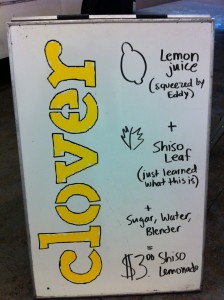 clover
Lemon
juice
(squeezed by
Eddy)
+
Shiso
Leaf
(just learned
what this is)
+
Sugar, Water,
Blender
=
$3.00 Shiso
Lemonade